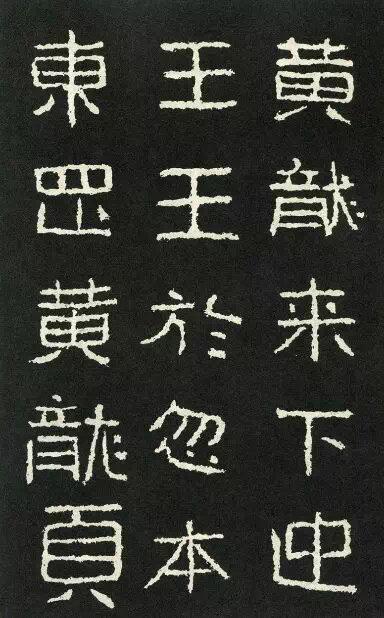 黄龍来下迎
王王於忽本
東罡黄龍頁